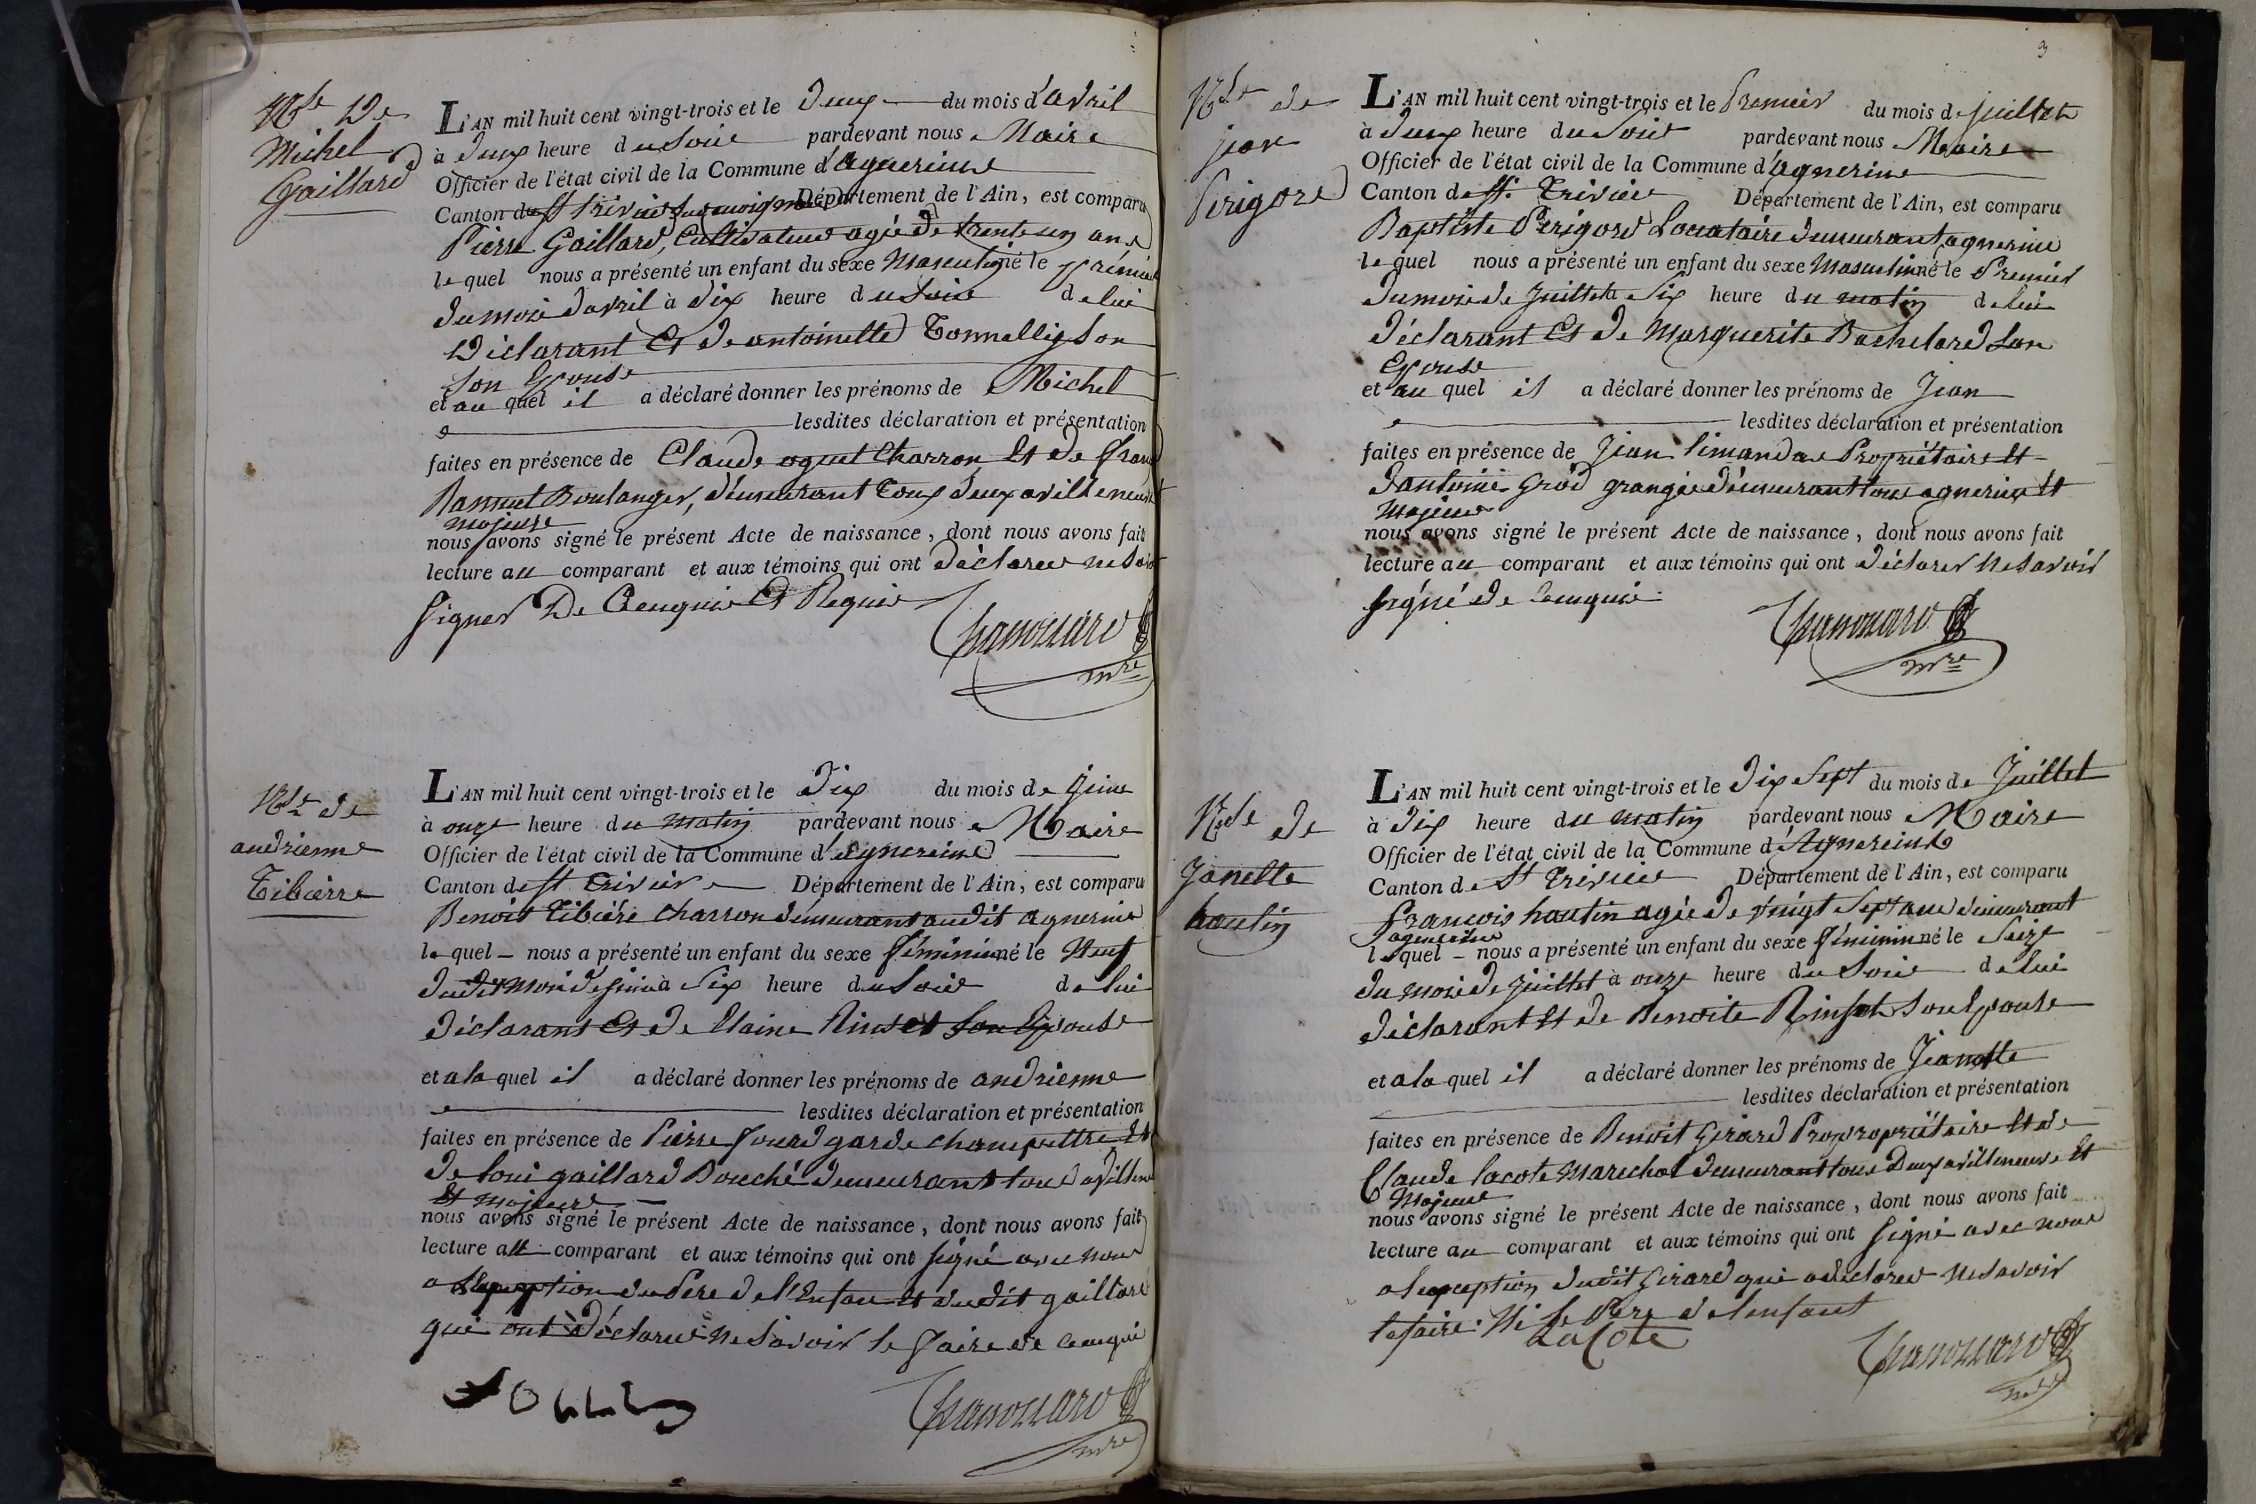 Nce De
Michel
Gaillard
L'AN mil huit cent vingt-trois et le deux du mois d'avril
à deux heure du Soir pardevant nous Maire
Officier de l'état civil de la Commune d'agnereins
Canton de St Trivier Département de l'Ain, est comparu
Pierre Gaillard, Cultivateur agée de trente un ans
lequel nous a présenté un enfant du sexe Masculin né le prémier
du moi d'avril à dix heure du Soir de lui
Déclarant Et de antoinette Tonnellij Son
Son Epouse
et au quel il a déclaré donner les prénoms de Michel
lesdites déclaration et présentation
faites en présence de Claude aguet Charron Et de
Boulanger, démeurant Tous deux a villeneuve
majeure
nous avons signé le présent Acte de naissance, dont nous avons fait
lecture au comparant et aux témoins qui ont déclarer ne Savoir
Signer De Ceuquis Et Requis
Chanouard
mre
Nce de
andrienne
Tibierre
L'AN mil huit cent vingt-trois et le dix du mois de juin
à onze heure du matin pardevant nous Maire
Officier de l'état civil de la Commune d'agnereins
Canton de St Trivier Département de l'Ain, est comparu
Benoit Tibiére charron demeurant audit agnerine
lequel nous a présenté un enfant du sexe féminin né le Neuf
dudit moi de juin à Six heure du Soir de lui
déclarant Et de Claine Rinset Son Epouse
et a la quel il a déclaré donner les prénoms de andrienne
lesdites déclaration et présentation
faites en présence de Pierre fourd garde champettre Et
de loui gaillard Bouché demeurant tous a villeneuve
Et majeure
nous avons signé le présent Acte de naissance, dont nous avons fait
lecture au comparant et aux témoins qui ont signé avec nous
a l'exeption du Pére de l'Enfan Et dudit gaillard
qui ont déclarer ne Savoir le faire de ceuqui
Chanouard
mre
3
Nce de
jean
Perigord
L'AN mil huit cent vingt-trois et le Premier du mois de juillet
à deux heure du Soir pardevant nous Maire
Officier de l'état civil de la Commune d'agnerine
Canton de St. Trivier Département de l'Ain, est comparu
Baptiste Perigord Locataire demeurant agnerine
lequel nous a présenté un enfant du sexe Masculin né le Premier
du moi de juillet à Six heure du matin de lui
déclarant Et de Marguerite Bachelard Son
Epouse
et au quel il a déclaré donner les prénoms de Jean
lesdites déclaration et présentation
faites en présence de Jean limandas Propriétaire Et
d'antoine Grod granger démeurant tous agnerine Et
Majeure
nous avons signé le présent Acte de naissance, dont nous avons fait
lecture au comparant et aux témoins qui ont déclarer Ne Savoir
Signé de ceuquis.
Chanouard
mre
Nce de
Janette
hautin
L'AN mil huit cent vingt-trois et le dix Sept du mois de Juillet
à dix heure du matin pardevant nous Maire
Officier de l'état civil de la Commune d'Agnereins
Canton de St Trivier Département de l'Ain, est comparu
francois hautin agée de vingt Sept ans demeurant
agnerine
lequel nous a présenté un enfant du sexe féminin né le Seize
du moi de juillet à onze heure du Soir de lui
déclarant Et de Benoite Rinset Son Epouse
et a la quel il a déclaré donner les prénoms de Jeanette
lesdites déclaration et présentation
faites en présence de Benoit Girard Propropriétaire Et de
Claude lacote Marechal demeurant tous deux a villeneuve Et
Majeure
nous avons signé le présent Acte de naissance, dont nous avons fait
lecture au comparant et aux témoins qui ont signé avec nous
a l'exception dudit Girard qui a déclarer Ne Savoir
le faire. Ni le Pere de l'enfant
LaCote
Chanouard